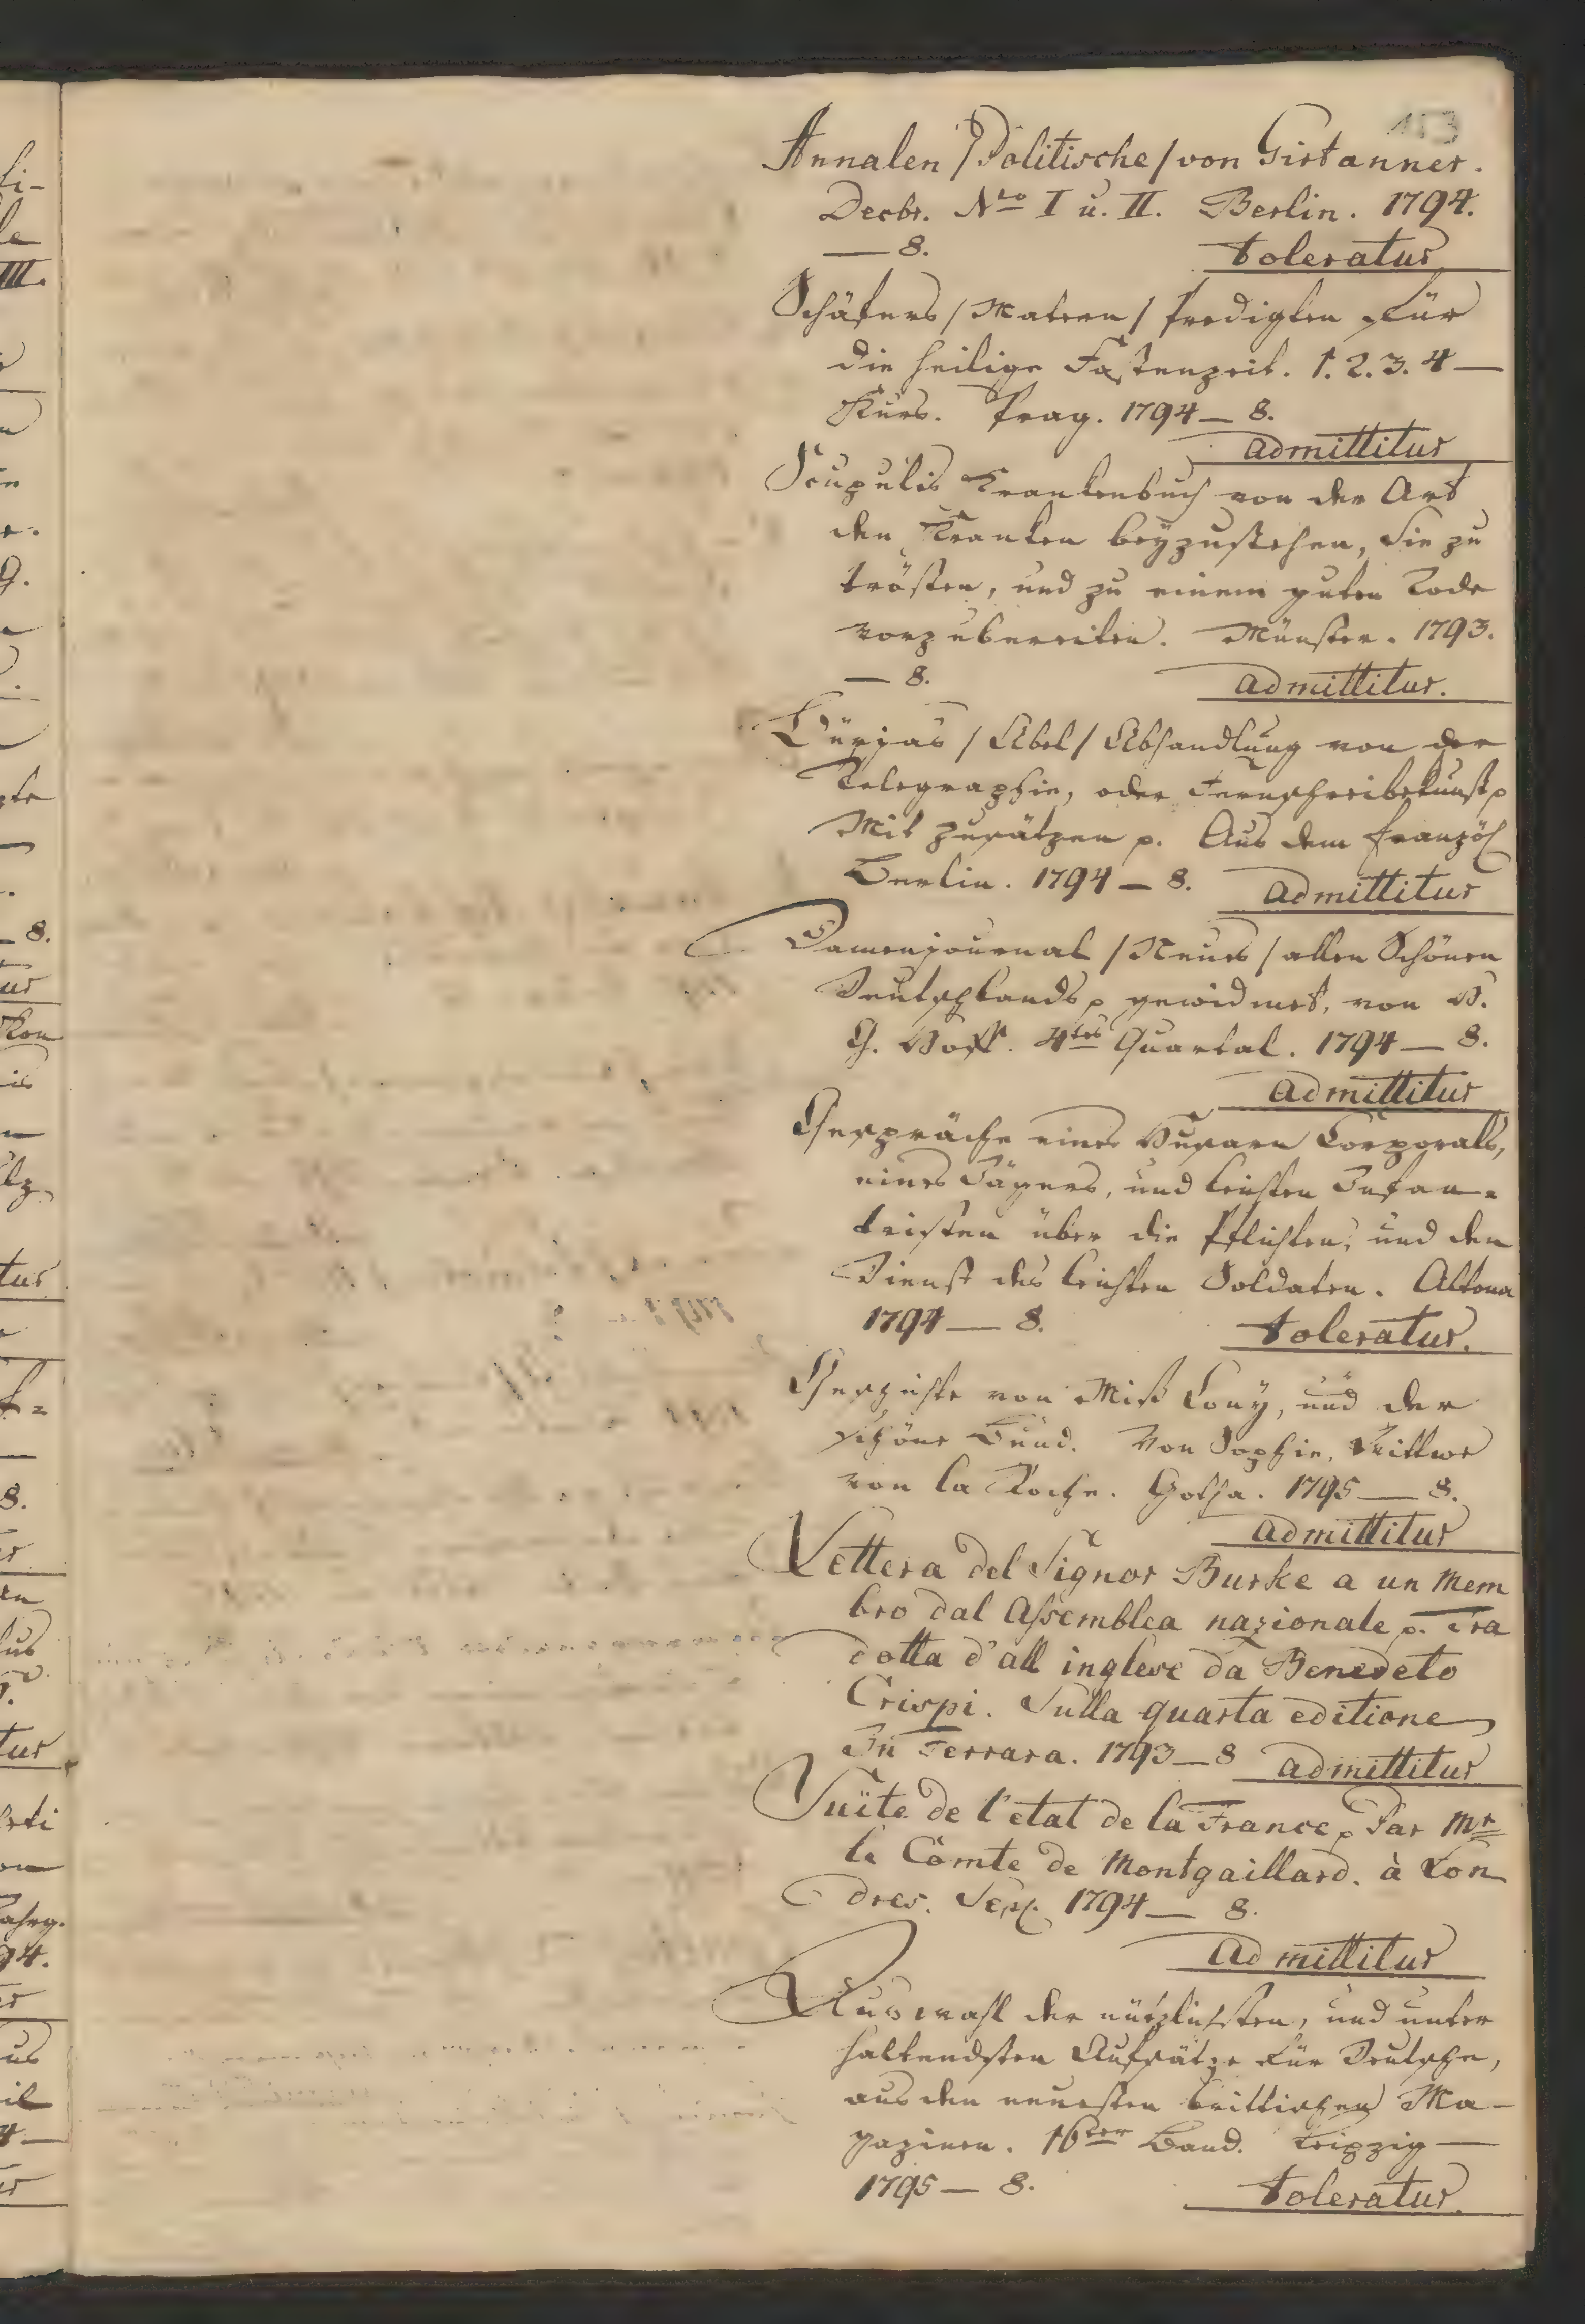 153
Annalen / Politische / von Girtanner.
Decbr. Nro I u. II. Berlin. 1794.
— 8. toleratur
Schäfers / Matern / Predigten für
die heilige Fastenzeit. 1. 2. 3. 4 —
Kurs. Prag. 1794 — 8.
admittitur
Scupulis Krankenbuch von der Art
den Kranken beyzustehen, Sie zu
trösten, und zu einem guten Tode
vorzubereiten. Münster. 1793.
— 8. admittitur.
Bürjas / Abel / Abhandlung von der
Telegraphie, oder Fernschreibekunst p
Mit Zusätzen p. Aus dem Französ
Berlin. 1794 — 8. admittitur
Damenjournal / Neues / allen Schönen
Deutschlands p gewidmet, von
G. Voss. 4tes Quartal. 1794 — 8.
admittitur
Gespräche eines Husaren Corporals,
eines Jägers, und leichten Infan-
teristen über die Pflichten, und den
Dienst des leichten Soldaten. Altona
1794 — 8. toleratur.
Geschichte von Miß Lony, und der
schöne Bund. Von Sophie, Wittwe
von la Roche. Gotha. 1795 — 8.
admittitur
Lettera del Signor Burke a un Mem
bro dal Assemblea nazionale p. Tra
dotta d'all inglese da Benedeto
Crispi. Sulla quarta editione
In Ferrara. 1793 — 8 admittitur
Suite de l'etat de la France p Par Mr
le Comte de Montgaillard. à Lon
dres. Sept. 1794 — 8.
admittitur
Auswahl der nützlichsten, und unter
haltendsten Aufsätze für Deutsche,
aus den neuesten brittischen Ma-
gazinen. 16ter Band. Leipzig —
1795 — 8. toleratur.